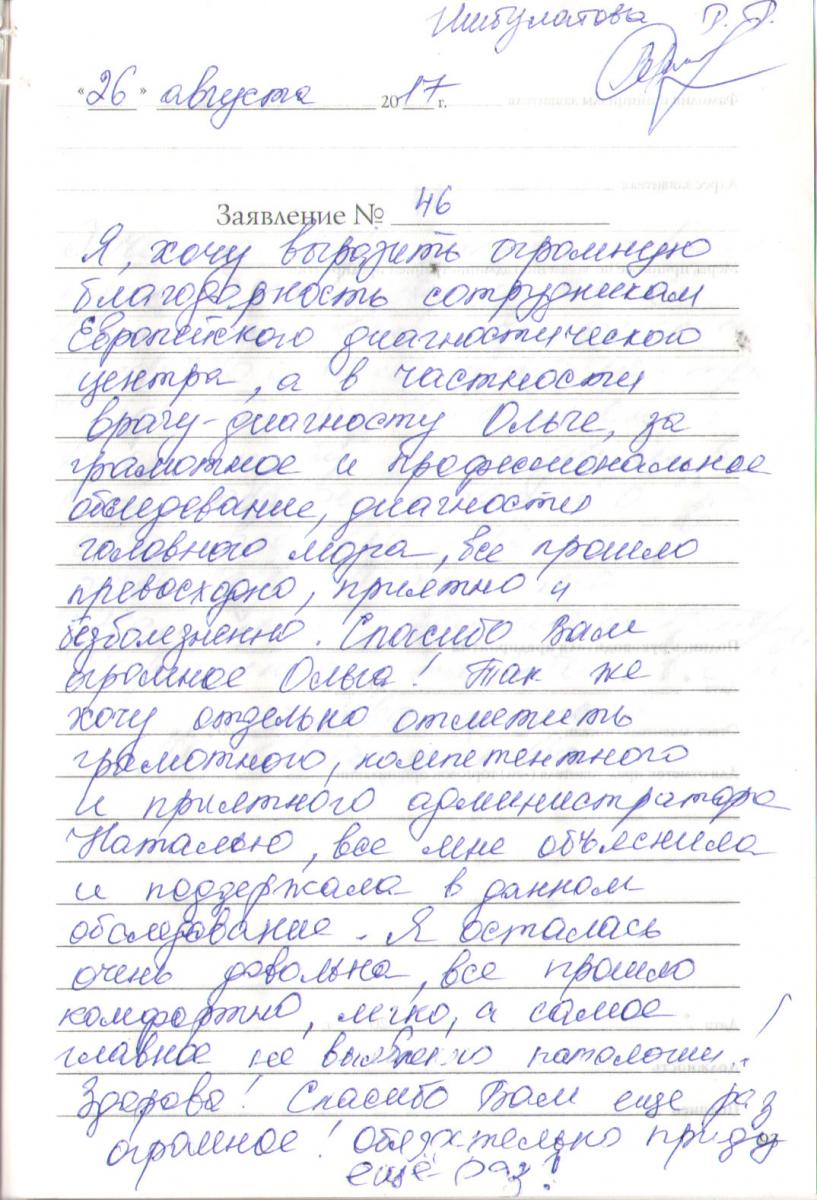 Ишбулатова Р. Р.
"26" августа 2017 г.
Заявление № 46
Я, хочу выразить огромную
благодарность сотрудникам
Европейского диагностического
центра, а в частности
врачу-диагносту Ольге, за
грамотное и профессиональное
обследование, диагностику
головного мозга, все прошло
превосходно, приятно и
безболезненно. Спасибо Вам
огромное Ольга! Так же
хочу отдельно отметить
грамотного, компетентного
и приятного администратора
Наталью, все мне объяснила
и поддержала в данном
обследование. Я осталась
очень довольна, все прошло
комфортно, легко, а самое
главное не выявлено патологии!
Здорова! Спасибо Вам еще раз
огромное! обязательно приду
ещё раз!